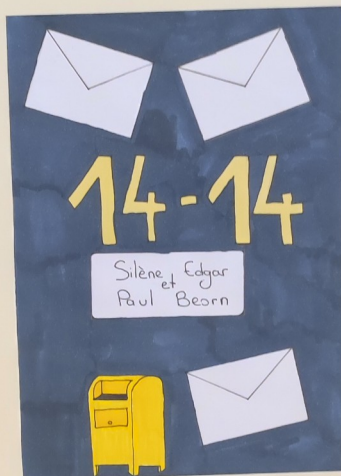 14-14
Silène Edgar
et
Paul Beorn